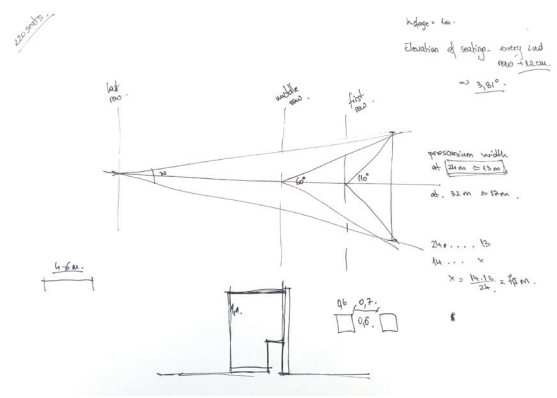 220 seats.
h stage = 1m.
Elevation of seating - every 2nd
row +12cm.
=> 3,81°.
last
row.
middle
row.
first
row.
30
60°
110°
proscenium width
at 24m ≃ 13m
at. 32m ≃ 17m.
24 .... 13
14 .... x
x = 14.13 / 24 = 7,5 m.
4-6m.
0,6 0,7.
0,6.